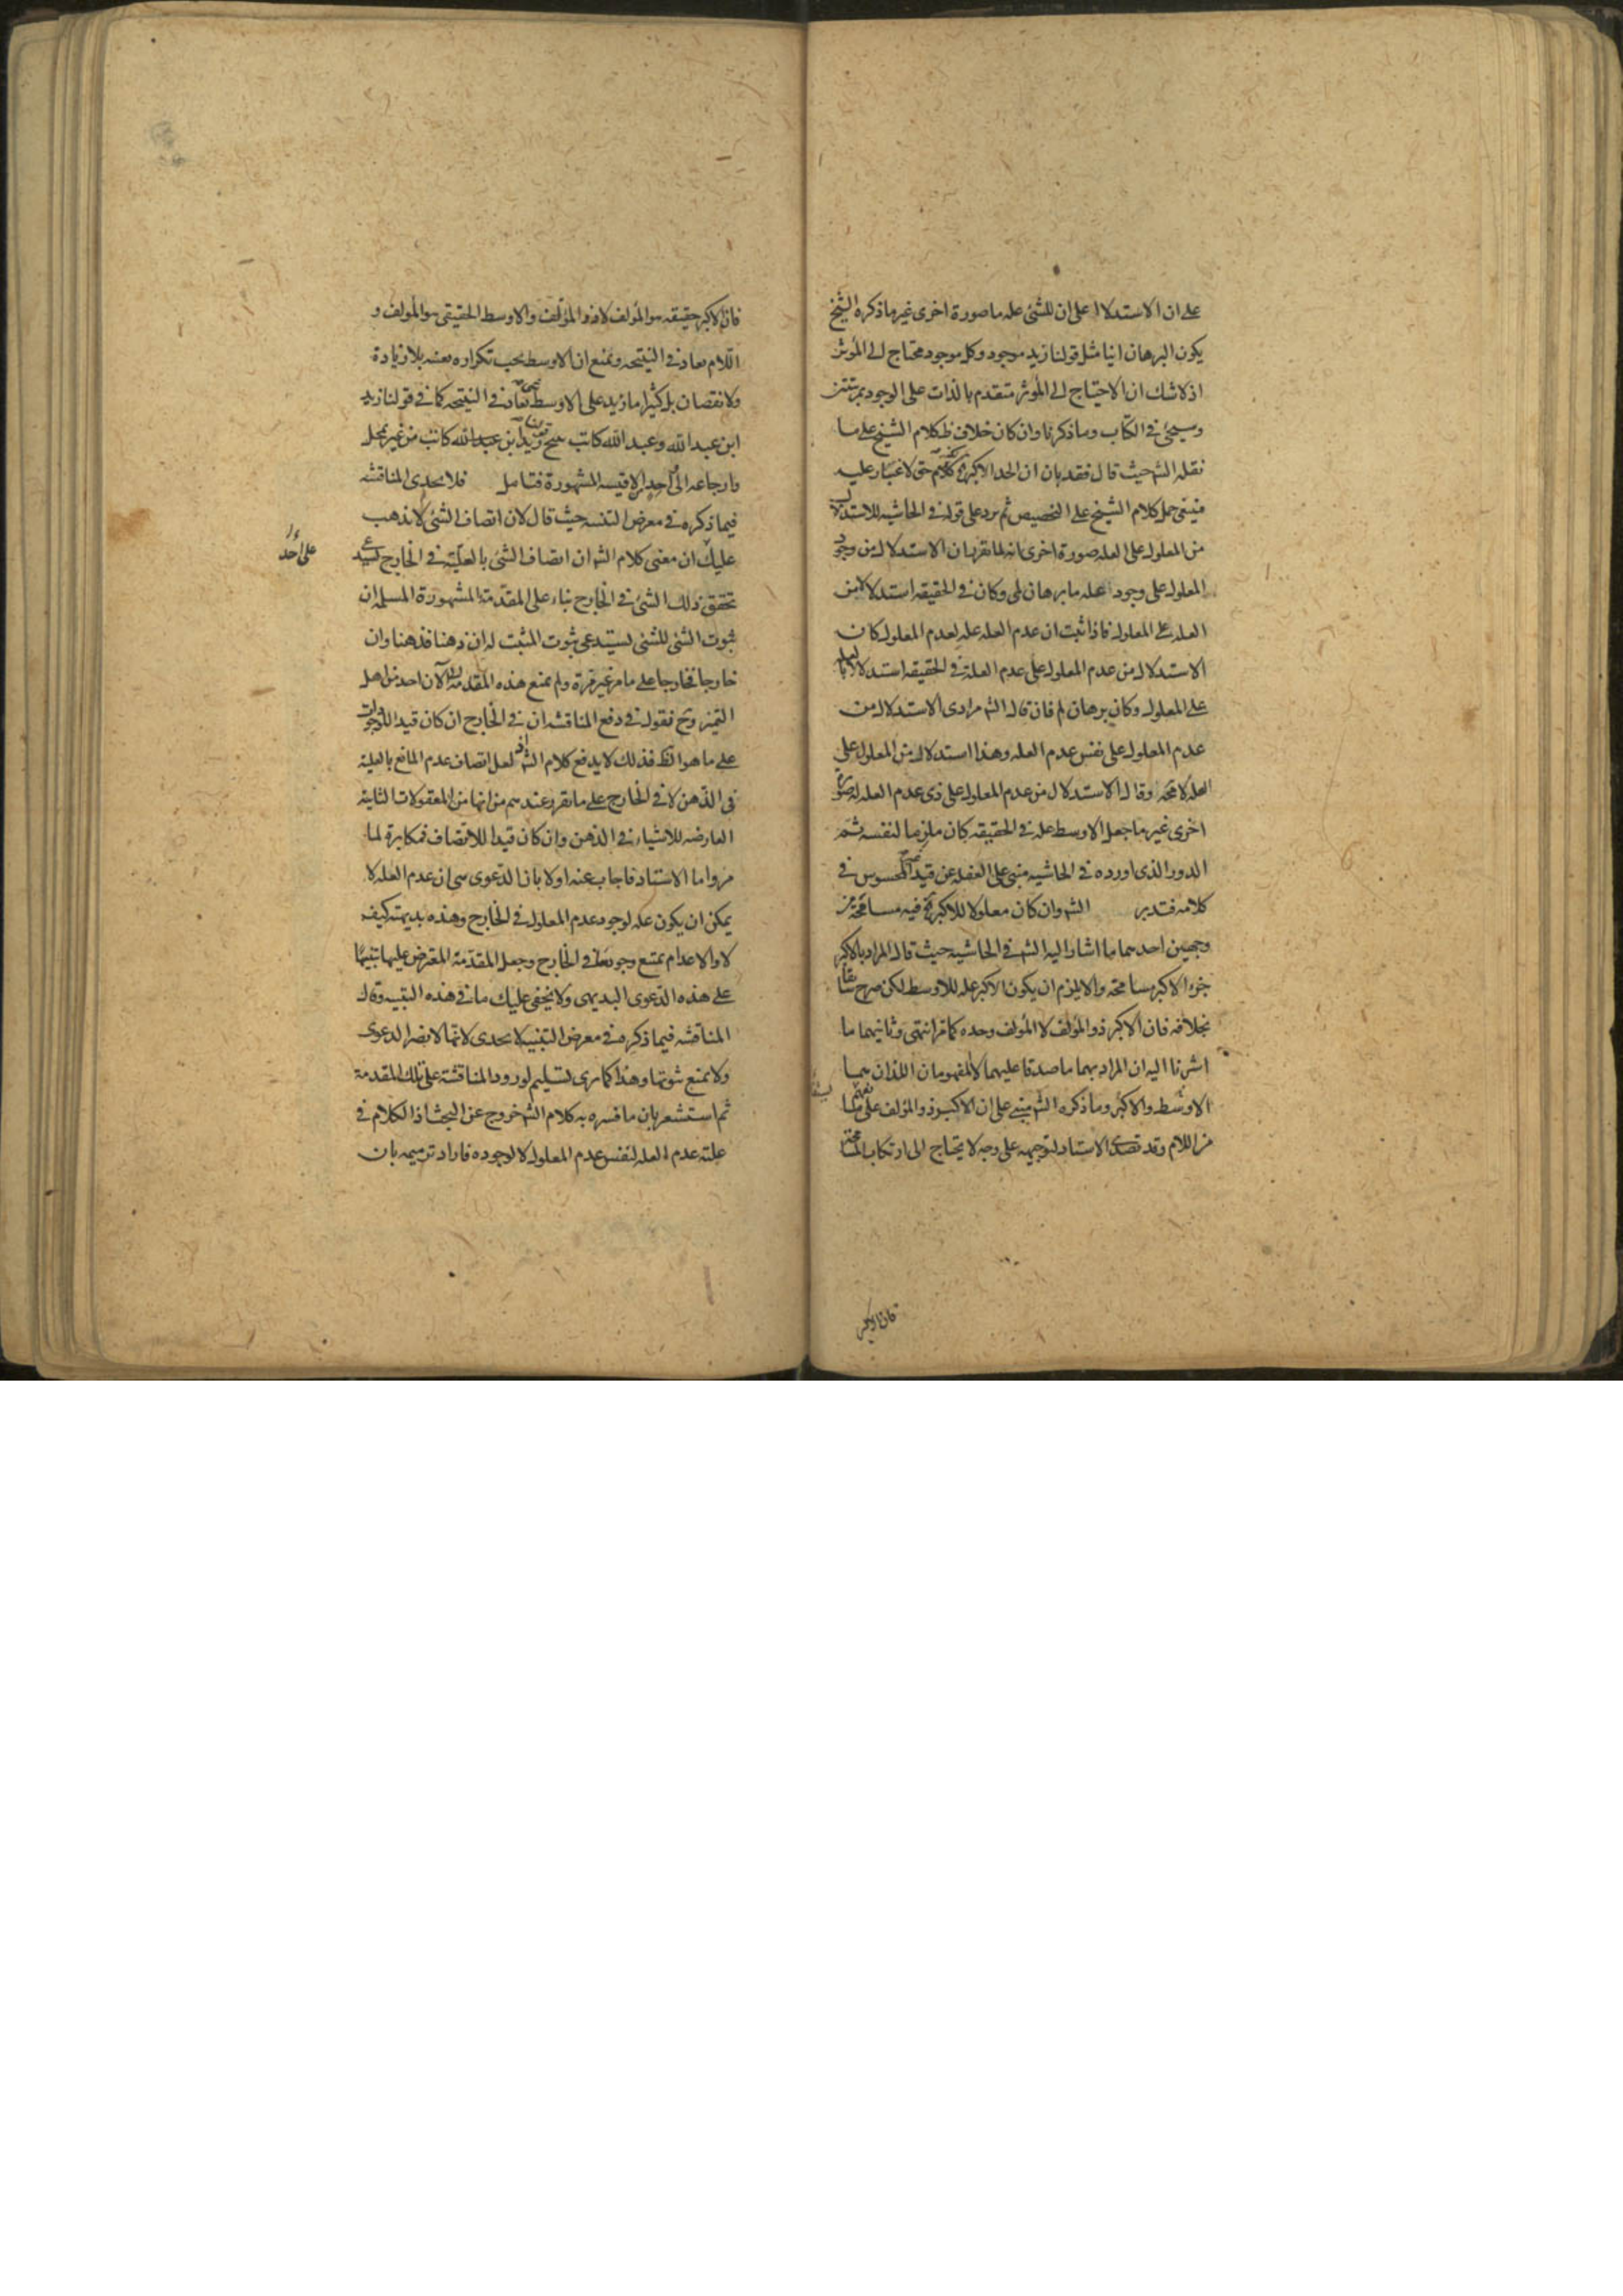 على ان الاستدلال على ان للشئ علة ما صورة اخرى غير ما ذكره الشيخ
يكون البرهان انيا مثل قولنا زيد موجود وكل موجود محتاج الى المؤثر
اذ لا شك ان الاحتياج الى المؤثر متقدم بالذات على الوجود بمرتبتين
وسيجئ فى الكتاب وما ذكرنا وان كان خلاف ظ كلام الشيخ على ما
نقله الشه حيث قال فقد بان ان الحد الاكبر حتى لا غبار عليه
فينبغى حمل كلام الشيخ على التخصيص ثم يرد على قوله فى الحاشيه للاستدلال
من المعلول على العله صورة اخرى انه لما تقر بان الاستدلال من وجود
المعلول على وجود العله ما برهان لمى وكان فى الحقيقه استدلالا من
العله على المعلول فاذا ثبت ان عدم العله عله لعدم المعلول كان
الاستدلال من عدم المعلول على عدم العلة فى الحقيقه استدلالا بالعله
على المعلول وكان برهان لم فان قال الشه مرادى الاستدلال من
عدم المعلول على نفس عدم العله وهذا استدلال من المعلول على
العله لا محه وقال الاستدلال من عدم المعلول على ذى عدم العله له صورة
اخرى غير ما جعل الاوسط عله فى الحقيقه كان ملزما لنفسه ثم
الدور الذى اورده فى الحاشيه مبنى على الغفله عن قيد المحسوس فى
كلامه فتدبر الشه وان كان معلولا للاكبر فيه مسامحة من
وجهين احدهما ما اشار اليه الشه فى الحاشيه حيث قال المراد بالاكبر
جزء الاكبر مسامحه والا يلزم ان يكون الاكبر عله للاوسط لكن صرح سابقا
بخلافه فان الاكبر ذو المؤلف لا المؤلف وحده كما مر انتهى وثانيهما ما
اشرنا اليه ان المراد بهما ما صدقا عليهما لا المفهومان اللذان هما
الاوسط والاكبر وما ذكره الشه مبنى على ان الاكبر ذو المؤلف على
من اللام وقد تصدى الاستاد لتوجيهه على وجه لا يحتاج الى ارتكاب المسامحة
فان الاكبر
فان الاكبر حقيقه هو المؤلف لا ذو المؤلف والاوسط الحقيقى هو المؤلف و
اللام معاد فى النتيجه ونمنع ان الاوسط يجب تكراره بعينه بلا زيادة
ولا نقصان بل كثيرا ما زيد على الاوسط شئ معاد فى النتيجه كما فى قولنا زيد
ابن عبد الله وعبد الله كاتب ينتج زيد ابن عبد الله كاتب من غير تمحل
وارجاعه الى احد الاقيسه المشهورة فتامل فلا يجدى المناقشه
فيما ذكره فى معرض التنبيه حيث قال لان اتصاف الشئ لا يذهب
عليك ان معنى كلام الشه ان اتصاف الشئ بالعليّة فى الخارج يستدعى
تحقق ذلك الشئ فى الخارج بناء على المقدمة المشهورة المسلمه ان
ثبوت الشئ للشئ يستدعى ثبوت المثبت له ان ذهنا فذهنا وان
خارجا فخارجا على ما مر غير مرة ولم يمنع هذه المقدمة الى الآن احد من اهل
على احد
التميز وح فنقول فى دفع المناقشه ان فى الخارج ان كان قيدا للوجود
على ما هو الظ فذلك لا يدفع كلام الشه اذ لعل اتصاف عدم المانع بالعلية
فى الذهن لا فى الخارج على ما تقرر عندهم من انها من المعقولات الثانيه
العارضه للاشياء فى الذهن وان كان قيدا للاتصاف فمكابرة لما
مر واما الاستاد فاجاب عنه اولا بان الدعوى هى ان عدم العله لا
يمكن ان يكون عله لوجود عدم المعلول فى الخارج وهذه بديهيته كيف
لا والاعدام يمتنع وجودها فى الخارج وجعل المقدمة المعترض عليها تنبيها
على هذه الدعوى البديهى ولا يخفى عليك ما فى هذه التنبيه وقال
المناقشه فيما ذكره فى معرض التنبيه لا يجدى لانها لا يضر الدعوى
ولا يمنع ثبوتها وهذا كما ترى تسليم لورود المناقشة على تلك المقدمة
ثم استشعر بان ما فسره به كلام الشه خروج عن البحث اذ الكلام فى
علية عدم العله لنفس عدم المعلول لا لوجوده فاراد ترميمه بان